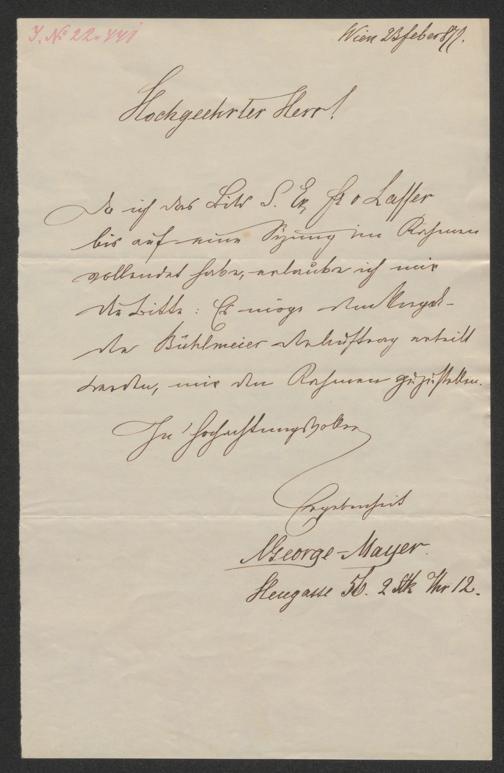 J. No 22.441
Wien 23 feber 871.
Hochgeehrter Herr!
Da ich das Bild S. Ex. H v Lasser
bis auf eine Sizung im Rahmen
vollendet habe, erlaube ich mir
die Bitte: Es möge dem Vergol-
der Bühlmeier der Auftrag ertheilt
werden, mir den Rahmen zuzustellen.
In hochachtungsvoller
Ergebenheit
George-Mayer.
Heugasse 56. 2 Stk Thr 12.